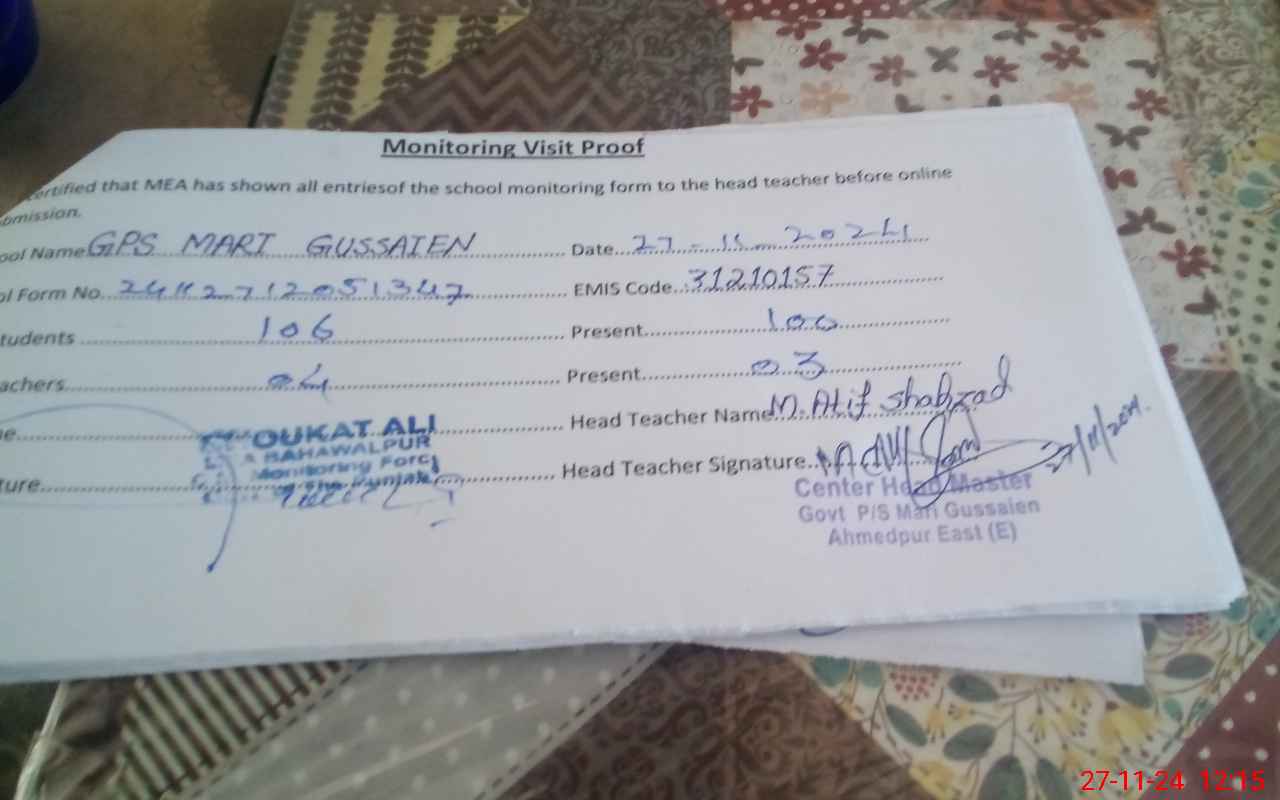 Monitoring Visit Proof
ertified that MEA has shown all entriesof the school monitoring form to the head teacher before online
bmission.
ool Name GPS MARI GUSSAIEN Date 27-11-2024
ol Form No. 24112712051347 EMIS Code 31210157
tudents 106 Present 100
achers 04 Present 03
e Head Teacher Name M. Atif Shahzad
OUKAT ALI
BAHAWALPUR
Monitoring Forc
The Punjab
ture Head Teacher Signature
27/11/2024
Center Head Master
Govt P/S Mari Gussaien
Ahmedpur East (E)
27-11-24 12:15